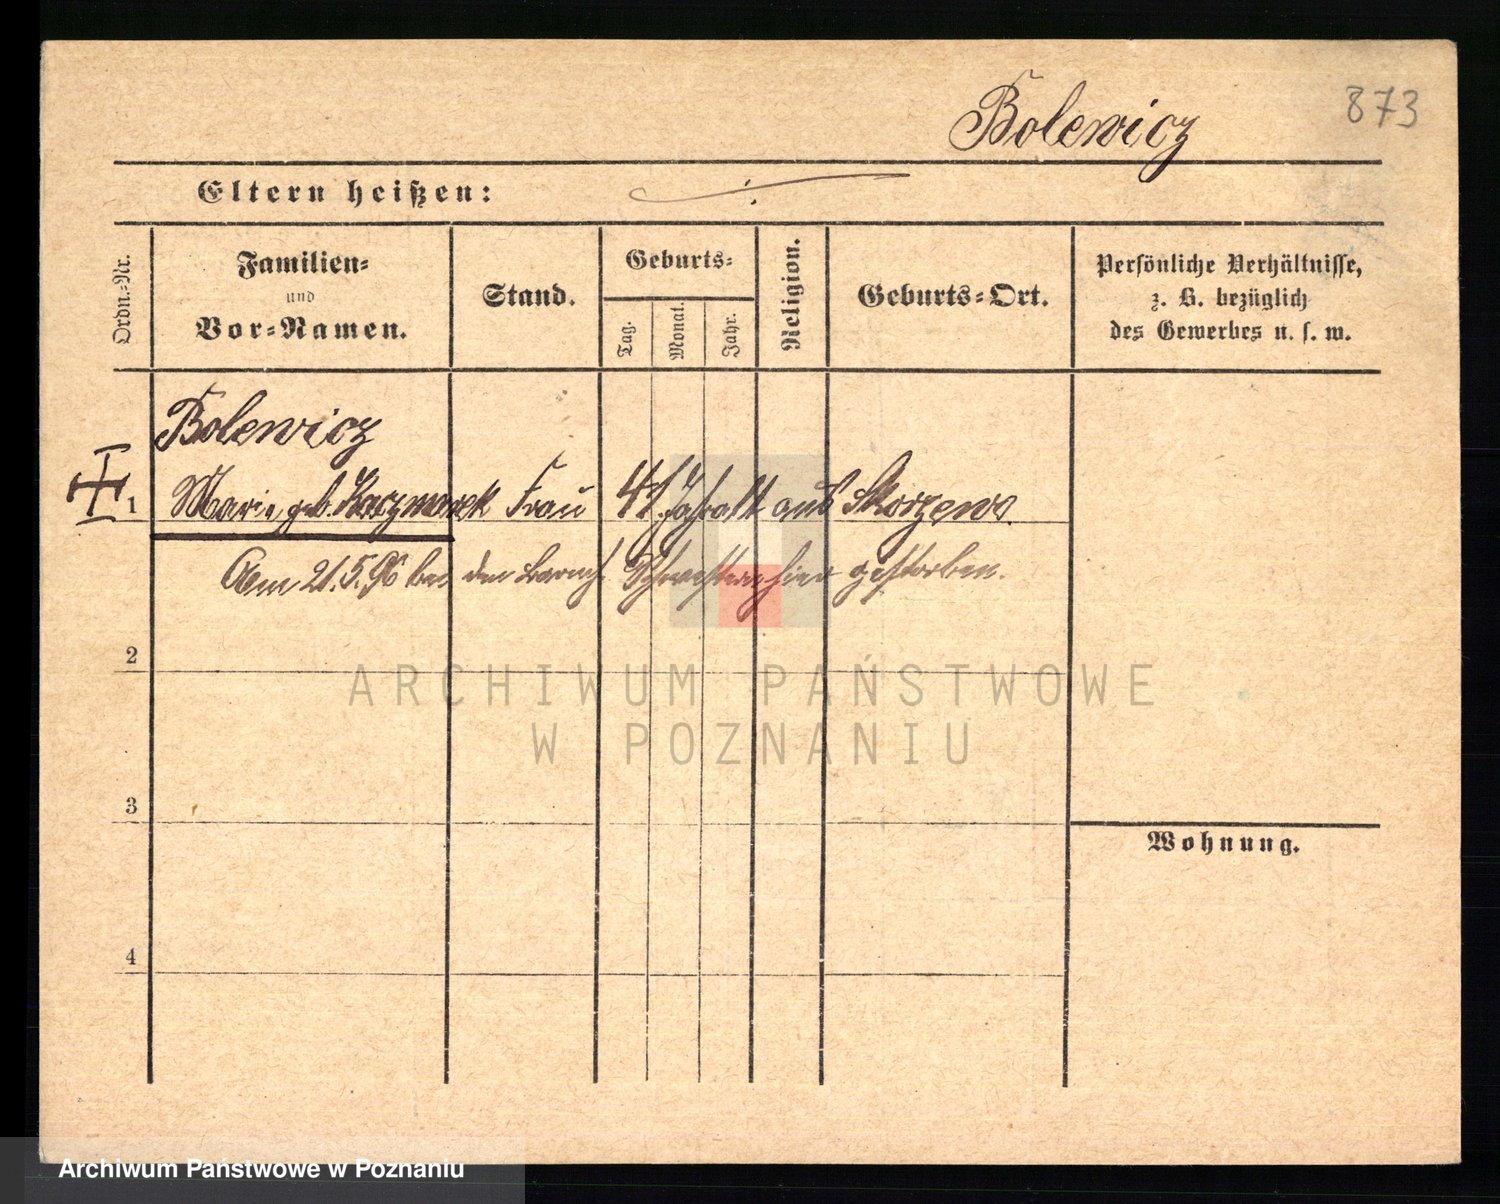 873
Bolewicz
Eltern heißen:
Ordn.-Nr.
Familien-
und
Vor-Namen.
Stand.
Geburts-
Tag.
Monat.
Jahr.
Religion.
Geburts-Ort.
Persönliche Verhältnisse,
z. B. bezüglich
des Gewerbes u. s. w.
Bolewicz
1 Marie geb. Kaczmarek Frau 41 Jahr alt aus Skorzewo.
Am 21.5.96 bei den barmh. Schwestern hier gestorben.
2
ARCHIWUM PAŃSTWOWE
W POZNANIU
3
Wohnung.
4
Archiwum Państwowe w Poznaniu